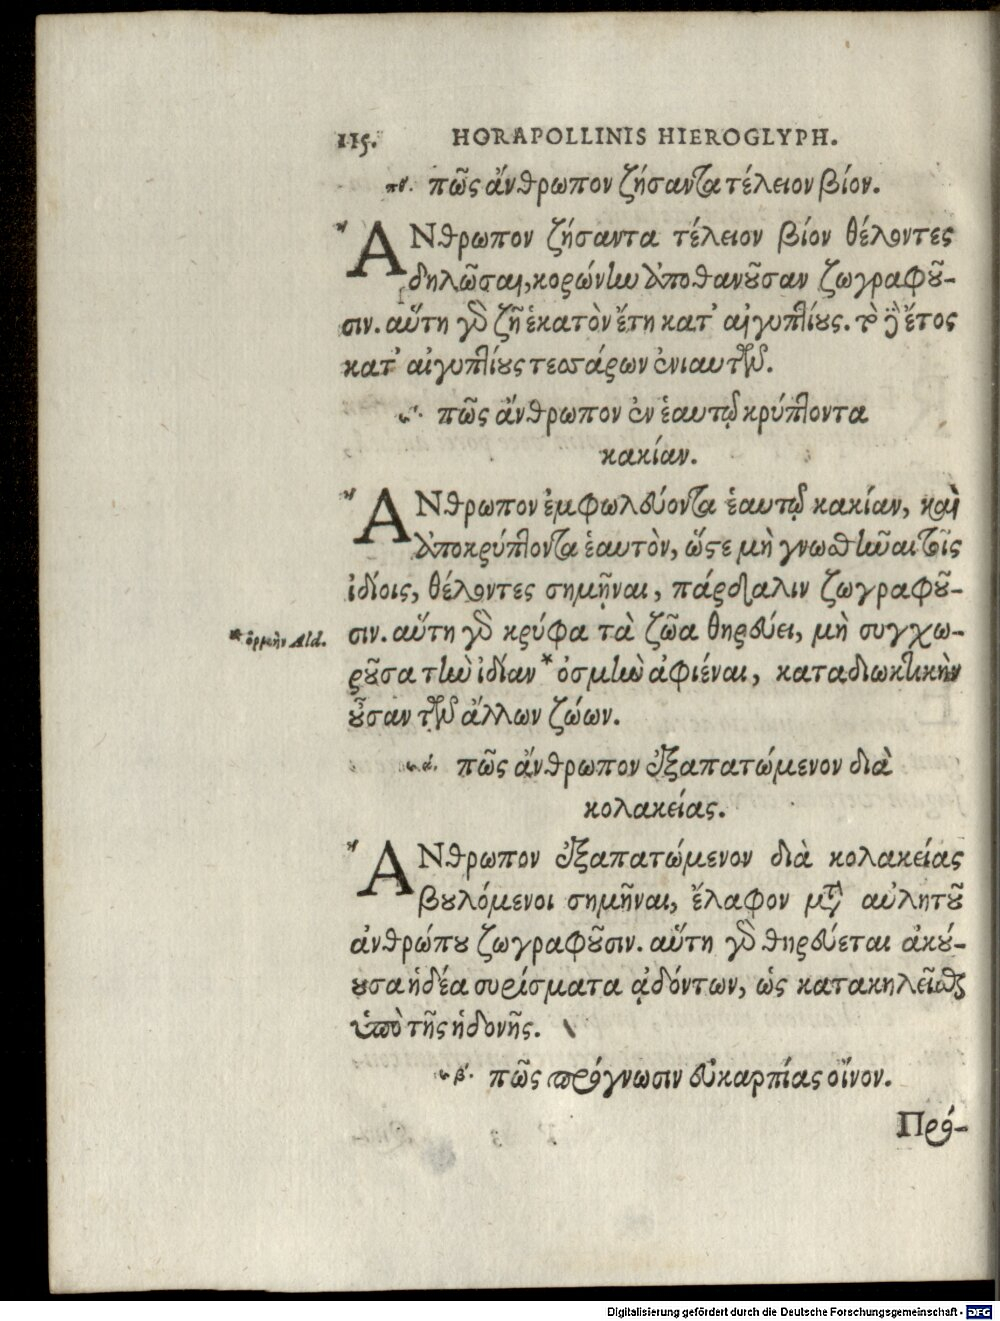 115. HORAPOLLINIS HIEROGLYPH.
πθ΄. πῶς ἄνθρωπον ζήσαντα τέλειον βίον.
ἌΝθρωπον ζήσαντα τέλειον βίον θέλοντες
δηλῶσαι, κορώνην ἀποθανοῦσαν ζωγραφοῦ-
σιν. αὕτη γὰρ ζῇ ἑκατὸν ἔτη κατ᾽ αἰγυπτίους. τὸ δὲ ἔτος
κατ᾽ αἰγυπτίους τεσσάρων ἐνιαυτῶν.
ϟ΄. πῶς ἄνθρωπον ἐν ἑαυτῷ κρύπτοντα
κακίαν.
ἌΝθρωπον ἐμφωλεύοντα ἑαυτῷ κακίαν, καὶ
ἀποκρύπτοντα ἑαυτὸν, ὥστε μὴ γνωσθῆναι τοῖς
ἰδίοις, θέλοντες σημῆναι, πάρδαλιν ζωγραφοῦ-
* ὁρμὴν Ald. σιν. αὕτη γὰρ κρύφα τὰ ζῶα θηρεύει, μὴ συγχω-
ροῦσα τὴν ἰδίαν * ὀσμὴν ἀφιέναι, καταδιωκτικὴν
οὖσαν τῶν ἄλλων ζώων.
ϟα΄. πῶς ἄνθρωπον ἐξαπατώμενον διὰ
κολακείας.
ἌΝθρωπον ἐξαπατώμενον διὰ κολακείας
βουλόμενοι σημῆναι, ἔλαφον μετὰ αὐλητοῦ
ἀνθρώπου ζωγραφοῦσιν. αὕτη γὰρ θηρεύεται ἀκού-
ουσα ἡδέα συρίσματα ᾀδόντων, ὡς κατακηλεῖσθαι
ὑπὸ τῆς ἡδονῆς.
ϟβ΄. πῶς πρόγνωσιν εὐκαρπίας οἴνον.
Πρό-
Digitalisierung gefördert durch die Deutsche Forschungsgemeinschaft - DFG